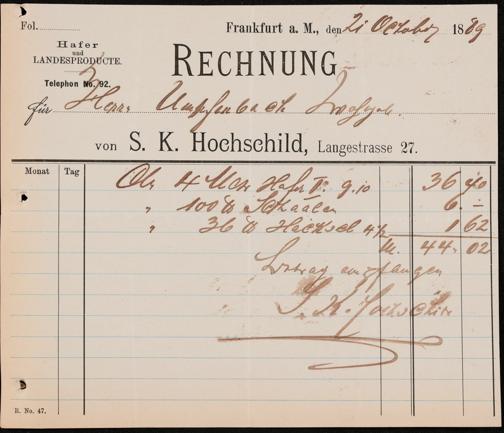 Fol.
Frankfurt a. M., den 21 October 1889
Hafer
und
LANDESPRODUCTE.
Telephon No. 92.
RECHNUNG
für Herrn Umpfenbach
von S. K. Hochschild, Langestrasse 27.
Monat Tag
4 Hafer 9.10 36 40
" 100 ℔ 6. –
" 36 ℔ Häcksel 4½ 1 62
M. 44. 02
Betrag empfangen
S. K. Hochschild
R. No. 47.